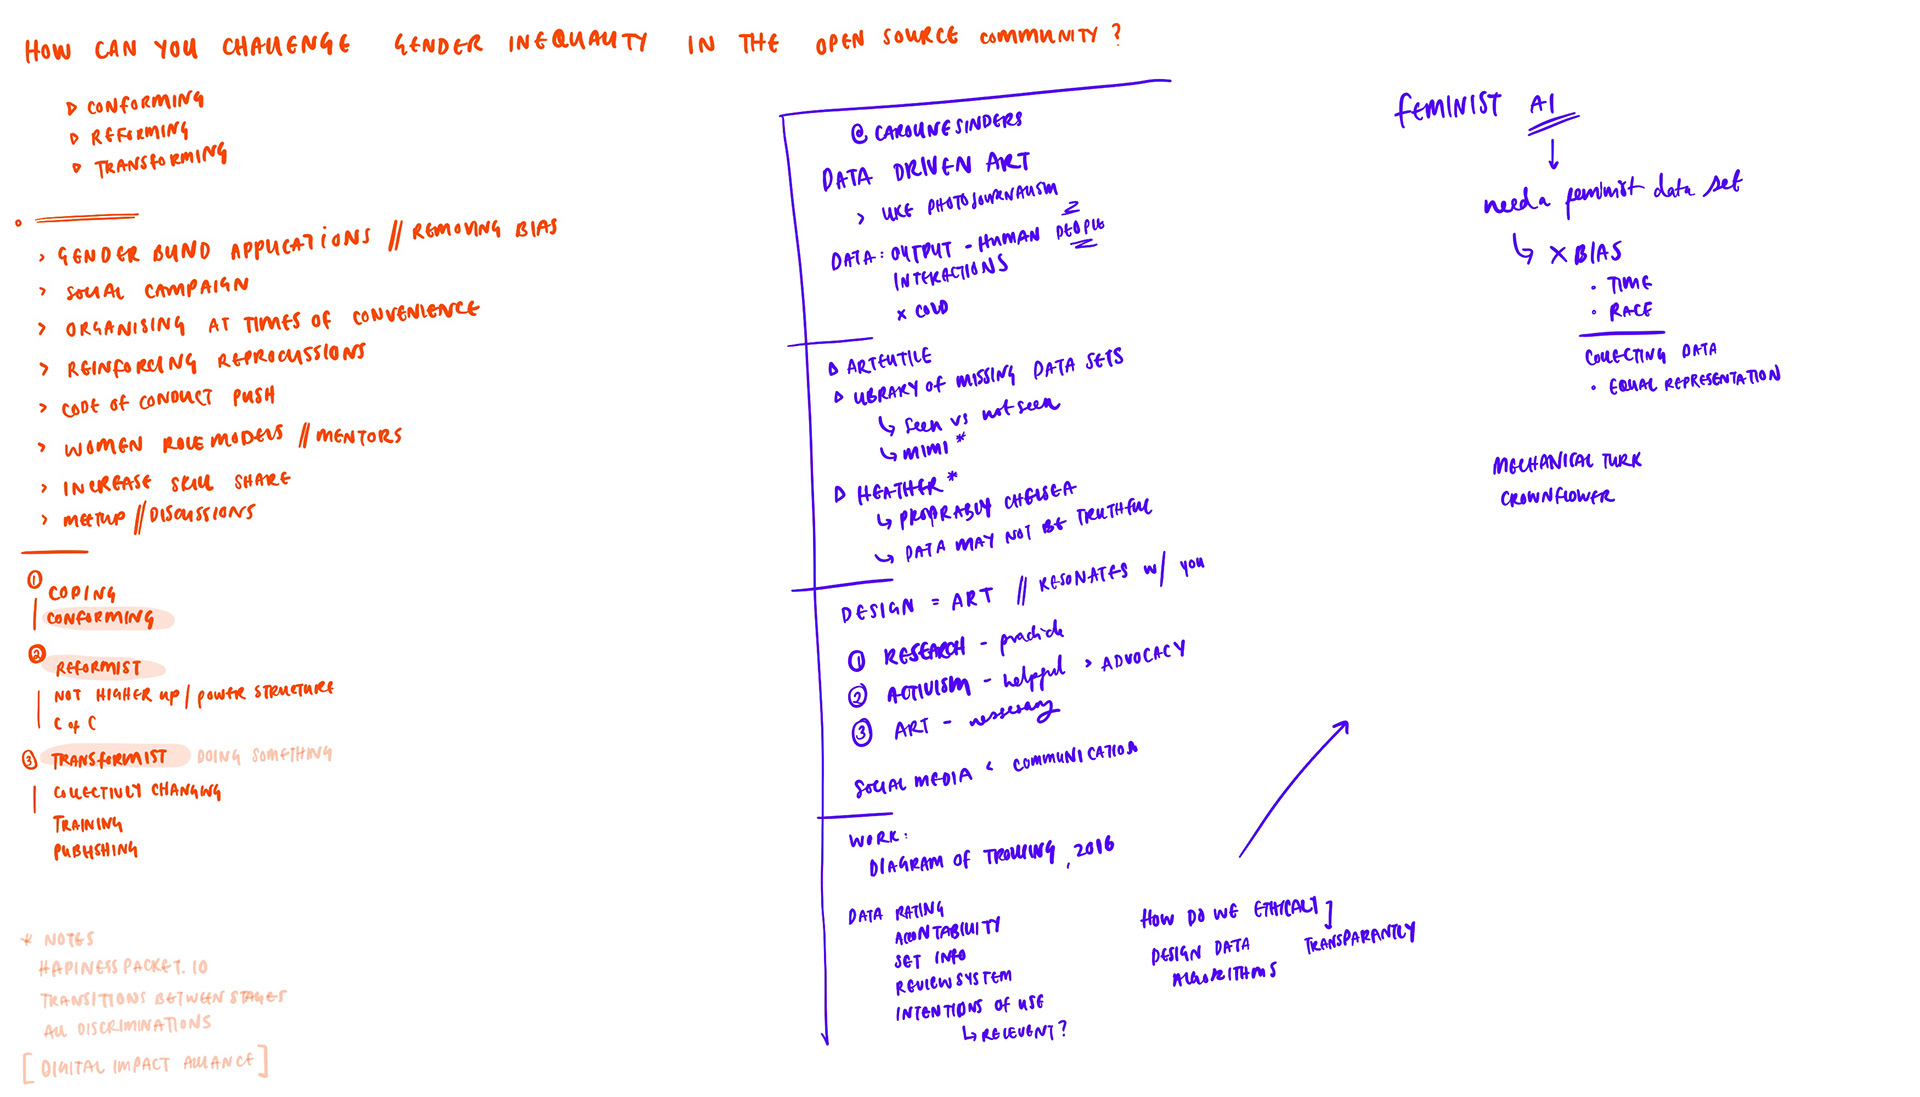 HOW CAN YOU CHALLENGE GENDER INEQUALITY IN THE OPEN SOURCE COMMUNITY?
▷ CONFORMING
▷ REFORMING
▷ TRANSFORMING
> GENDER BLIND APPLICATIONS // REMOVING BIAS
> SOCIAL CAMPAIGN
> ORGANISING AT TIMES OF CONVENIENCE
> REINFORCING REPROCUSSIONS
> CODE OF CONDUCT PUSH
> WOMEN ROLE MODELS // MENTORS
> INCREASE SKILL SHARE
> MEETUP // DISCUSSIONS
① COPING
CONFORMING
② REFORMIST
NOT HIGHER UP / POWER STRUCTURE
C of C
③ TRANSFORMIST DOING SOMETHING
COLLECTIVLY CHANGING
TRAINING
PUBLISHING
* NOTES
HAPINESSPACKET.IO
TRANSITIONS BETWEEN STAGES
ALL DISCRIMINATIONS
[DIGITAL IMPACT ALLIANCE]
@CAROLINESINDERS
DATA DRIVEN ART
> LIKE PHOTOJOURNALISM
DATA: OUTPUT - HUMAN PEOPLE
INTERACTIONS
x COLD
▷ ARTEUTILE
▷ LIBRARY OF MISSING DATA SETS
↳ seen vs not seen
↳ MIMI *
▷ HEATHER *
↳ PROPRABLY CHELSEA
↳ DATA MAY NOT BE TRUTHFUL
DESIGN = ART // RESONATES w/ you
① RESEARCH - practice
② ACTIVISM - helpful > ADVOCACY
③ ART - nessesary
SOCIAL MEDIA < COMMUNICATION
WORK:
DIAGRAM OF TROLLING, 2016
DATA RATING
ACONTABILITY
SET INFO
REVIEW SYSTEM
INTENTIONS OF USE
↳ RELEVENT?
HOW DO WE ETHICALY]
DESIGN DATA TRANSPARANTLY
ALGORITHMS
FEMINIST AI
↓
need a feminist data set
↳ x BIAS
• TIME
• RACE
COLLECTING DATA
• EQUAL REPRESENTATION
MECHANICAL TURK
CROWNFLOWER